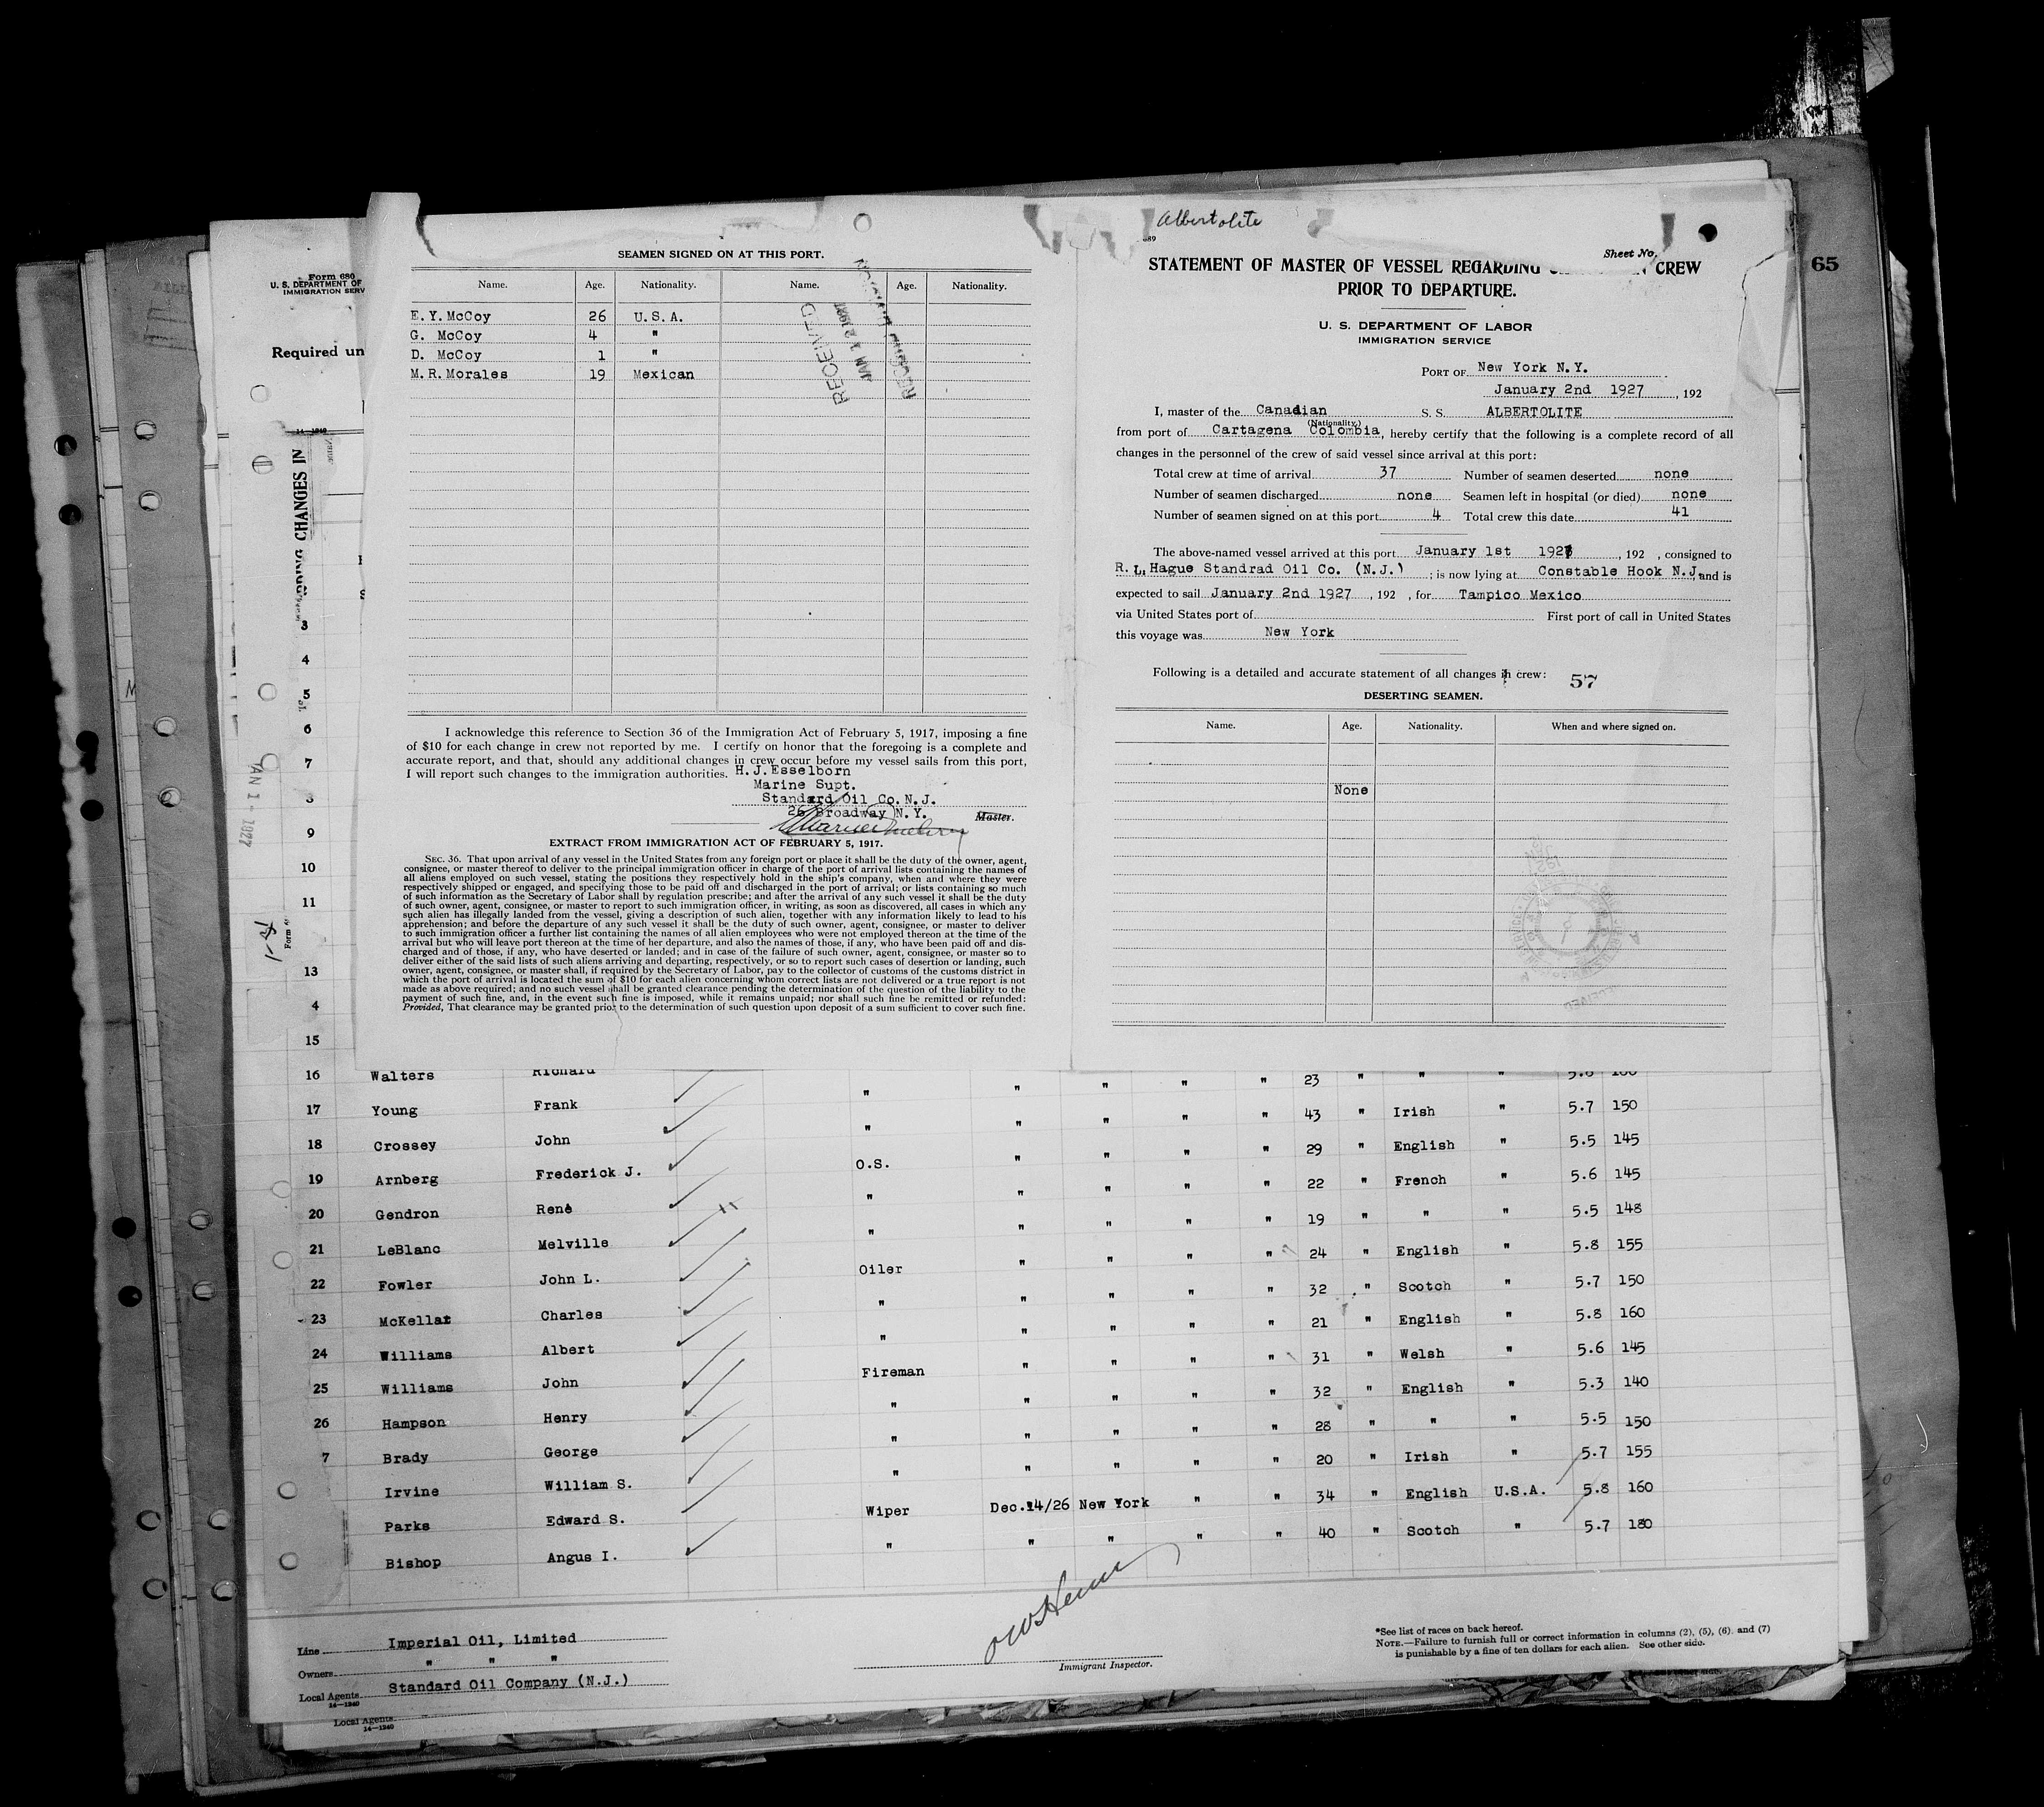 Albertolite
65
Form 680
U. S. DEPARTMENT OF
IMMIGRATION SERV
Required un
14-1240
RDING CHANGES IN
JAN 1- 1927
SEAMEN SIGNED ON AT THIS PORT.
Name. Age. Nationality. Name. Age. Nationality.
E. Y. McCoy 26 U. S. A.
G. McCoy 4 "
D. McCoy 1 "
M. R. Morales 19 Mexican
RECEIVED
I acknowledge this reference to Section 36 of the Immigration Act of February 5, 1917, imposing a fine
of $10 for each change in crew not reported by me. I certify on honor that the foregoing is a complete and
accurate report, and that, should any additional changes in crew occur before my vessel sails from this port,
I will report such changes to the immigration authorities. H. J. Esselborn
Marine Supt.
Standard Oil Co. N. J.
26 Broadway N. Y. Master.
EXTRACT FROM IMMIGRATION ACT OF FEBRUARY 5, 1917.
SEC. 36. That upon arrival of any vessel in the United States from any foreign port or place it shall be the duty of the owner, agent,
consignee, or master thereof to deliver to the principal immigration officer in charge of the port of arrival lists containing the names of
all aliens employed on such vessel, stating the positions they respectively hold in the ship's company, when and where they were
respectively shipped or engaged, and specifying those to be paid off and discharged in the port of arrival; or lists containing so much
of such information as the Secretary of Labor shall by regulation prescribe; and after the arrival of any such vessel it shall be the duty
of such owner, agent, consignee, or master to report to such immigration officer, in writing, as soon as discovered, all cases in which any
such alien has illegally landed from the vessel, giving a description of such alien, together with any information likely to lead to his
apprehension; and before the departure of any such vessel it shall be the duty of such owner, agent, consignee, or master to deliver
to such immigration officer a further list containing the names of all alien employees who were not employed thereon at the time of the
arrival but who will leave port thereon at the time of her departure, and also the names of those, if any, who have been paid off and dis-
charged and of those, if any, who have deserted or landed; and in case of the failure of such owner, agent, consignee, or master so to
deliver either of the said lists of such aliens arriving and departing, respectively, or so to report such cases of desertion or landing, such
owner, agent, consignee, or master shall, if required by the Secretary of Labor, pay to the collector of customs of the customs district in
which the port of arrival is located the sum of $10 for each alien concerning whom correct lists are not delivered or a true report is not
made as above required; and no such vessel shall be granted clearance pending the determination of the question of the liability to the
payment of such fine, and, in the event such fine is imposed, while it remains unpaid; nor shall such fine be remitted or refunded:
Provided, That clearance may be granted prior to the determination of such question upon deposit of a sum sufficient to cover such fine.
689
Sheet No.
STATEMENT OF MASTER OF VESSEL REGARDING CREW
PRIOR TO DEPARTURE.
U. S. DEPARTMENT OF LABOR
IMMIGRATION SERVICE
PORT OF New York N. Y.
January 2nd 1927, 192
I, master of the Canadian S. S. ALBERTOLITE
(Nationality)
from port of Cartagena Colombia, hereby certify that the following is a complete record of all
changes in the personnel of the crew of said vessel since arrival at this port:
Total crew at time of arrival 37 Number of seamen deserted none
Number of seamen discharged none Seamen left in hospital (or died) none
Number of seamen signed on at this port 4 Total crew this date 41
The above-named vessel arrived at this port January 1st 1927, 192 , consigned to
R. L. Hague Standrad Oil Co. (N.J.) ; is now lying at Constable Hook N.J. and is
expected to sail January 2nd 1927, 192 , for Tampico Mexico
via United States port of First port of call in United States
this voyage was New York
Following is a detailed and accurate statement of all changes in crew: 57
DESERTING SEAMEN.
Name. Age. Nationality. When and where signed on.
None
3
4
5
6
7
3
9
10
11
13
4
15
16 Walters Richard " " " " " 23 " " " 5.6
17 Young Frank " " " " " 43 " Irish " 5.7 150
18 Crossey John " " " " " 29 " English " 5.5 145
19 Arnberg Frederick J. O.S. " " " " 22 " French " 5.6 145
20 Gendron René " " " " " 19 " " " 5.5 148
21 LeBlanc Melville " " " " " 24 " English " 5.8 155
22 Fowler John L. Oiler " " " " 32 " Scotch " 5.7 150
23 McKellar Charles " " " " " 21 " English " 5.8 160
24 Williams Albert " " " " " 31 " Welsh " 5.6 145
25 Williams John Fireman " " " " 32 " English " 5.3 140
26 Hampson Henry " " " " " 28 " " " 5.5 150
7 Brady George " " " " " 20 " Irish " 5.7 155
Irvine William S. " Dec.14/26 New York " " 34 " English U.S.A. 5.8 160
Parks Edward S. Wiper " " " " 40 " Scotch " 5.7 180
Bishop Angus I. "
Line Imperial Oil, Limited
Owners " " "
Local Agents Standard Oil Company (N.J.)
14-1240
Immigrant Inspector.
*See list of races on back hereof.
NOTE.—Failure to furnish full or correct information in columns (2), (5), (6), and (7)
is punishable by a fine of ten dollars for each alien. See other side.
Local Agents
14-1240